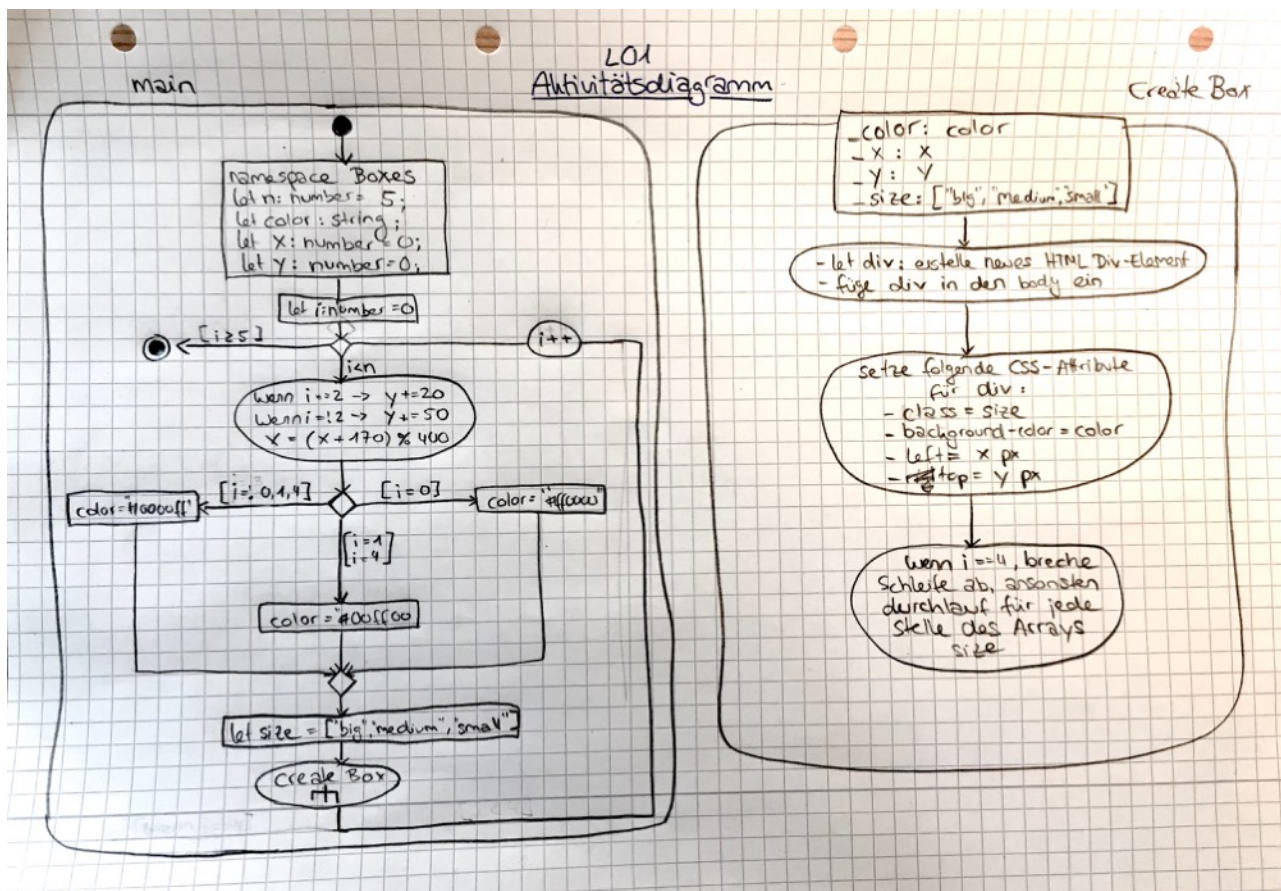 L01
Aktivitätsdiagramm
main
namespace Boxes
let n: number = 5;
let color: string;
let x: number = 0;
let y: number = 0;
let i: number = 0
[i≥5]
i++
i<n
wenn i==2 -> y+=20
wenn i=!2 -> y+=50
x = (x+170) % 400
[i=! 0,1,4]
[i=0]
color="#0000ff"
color="#ff0000"
[i=1
i=4]
color="#00ff00
let size = ["big","medium","small"]
create Box
Create Box
_color: color
_x: x
_y: y
_size: ["big","medium","small"]
- let div: erstelle neues HTML Div-Element
- füge div in den body ein
setze folgende CSS-Attribute
für div:
- class = size
- background-color = color
- left = x px
- top = y px
wenn i==4, breche
Schleife ab, ansonsten
durchlauf für jede
stelle des Arrays
size